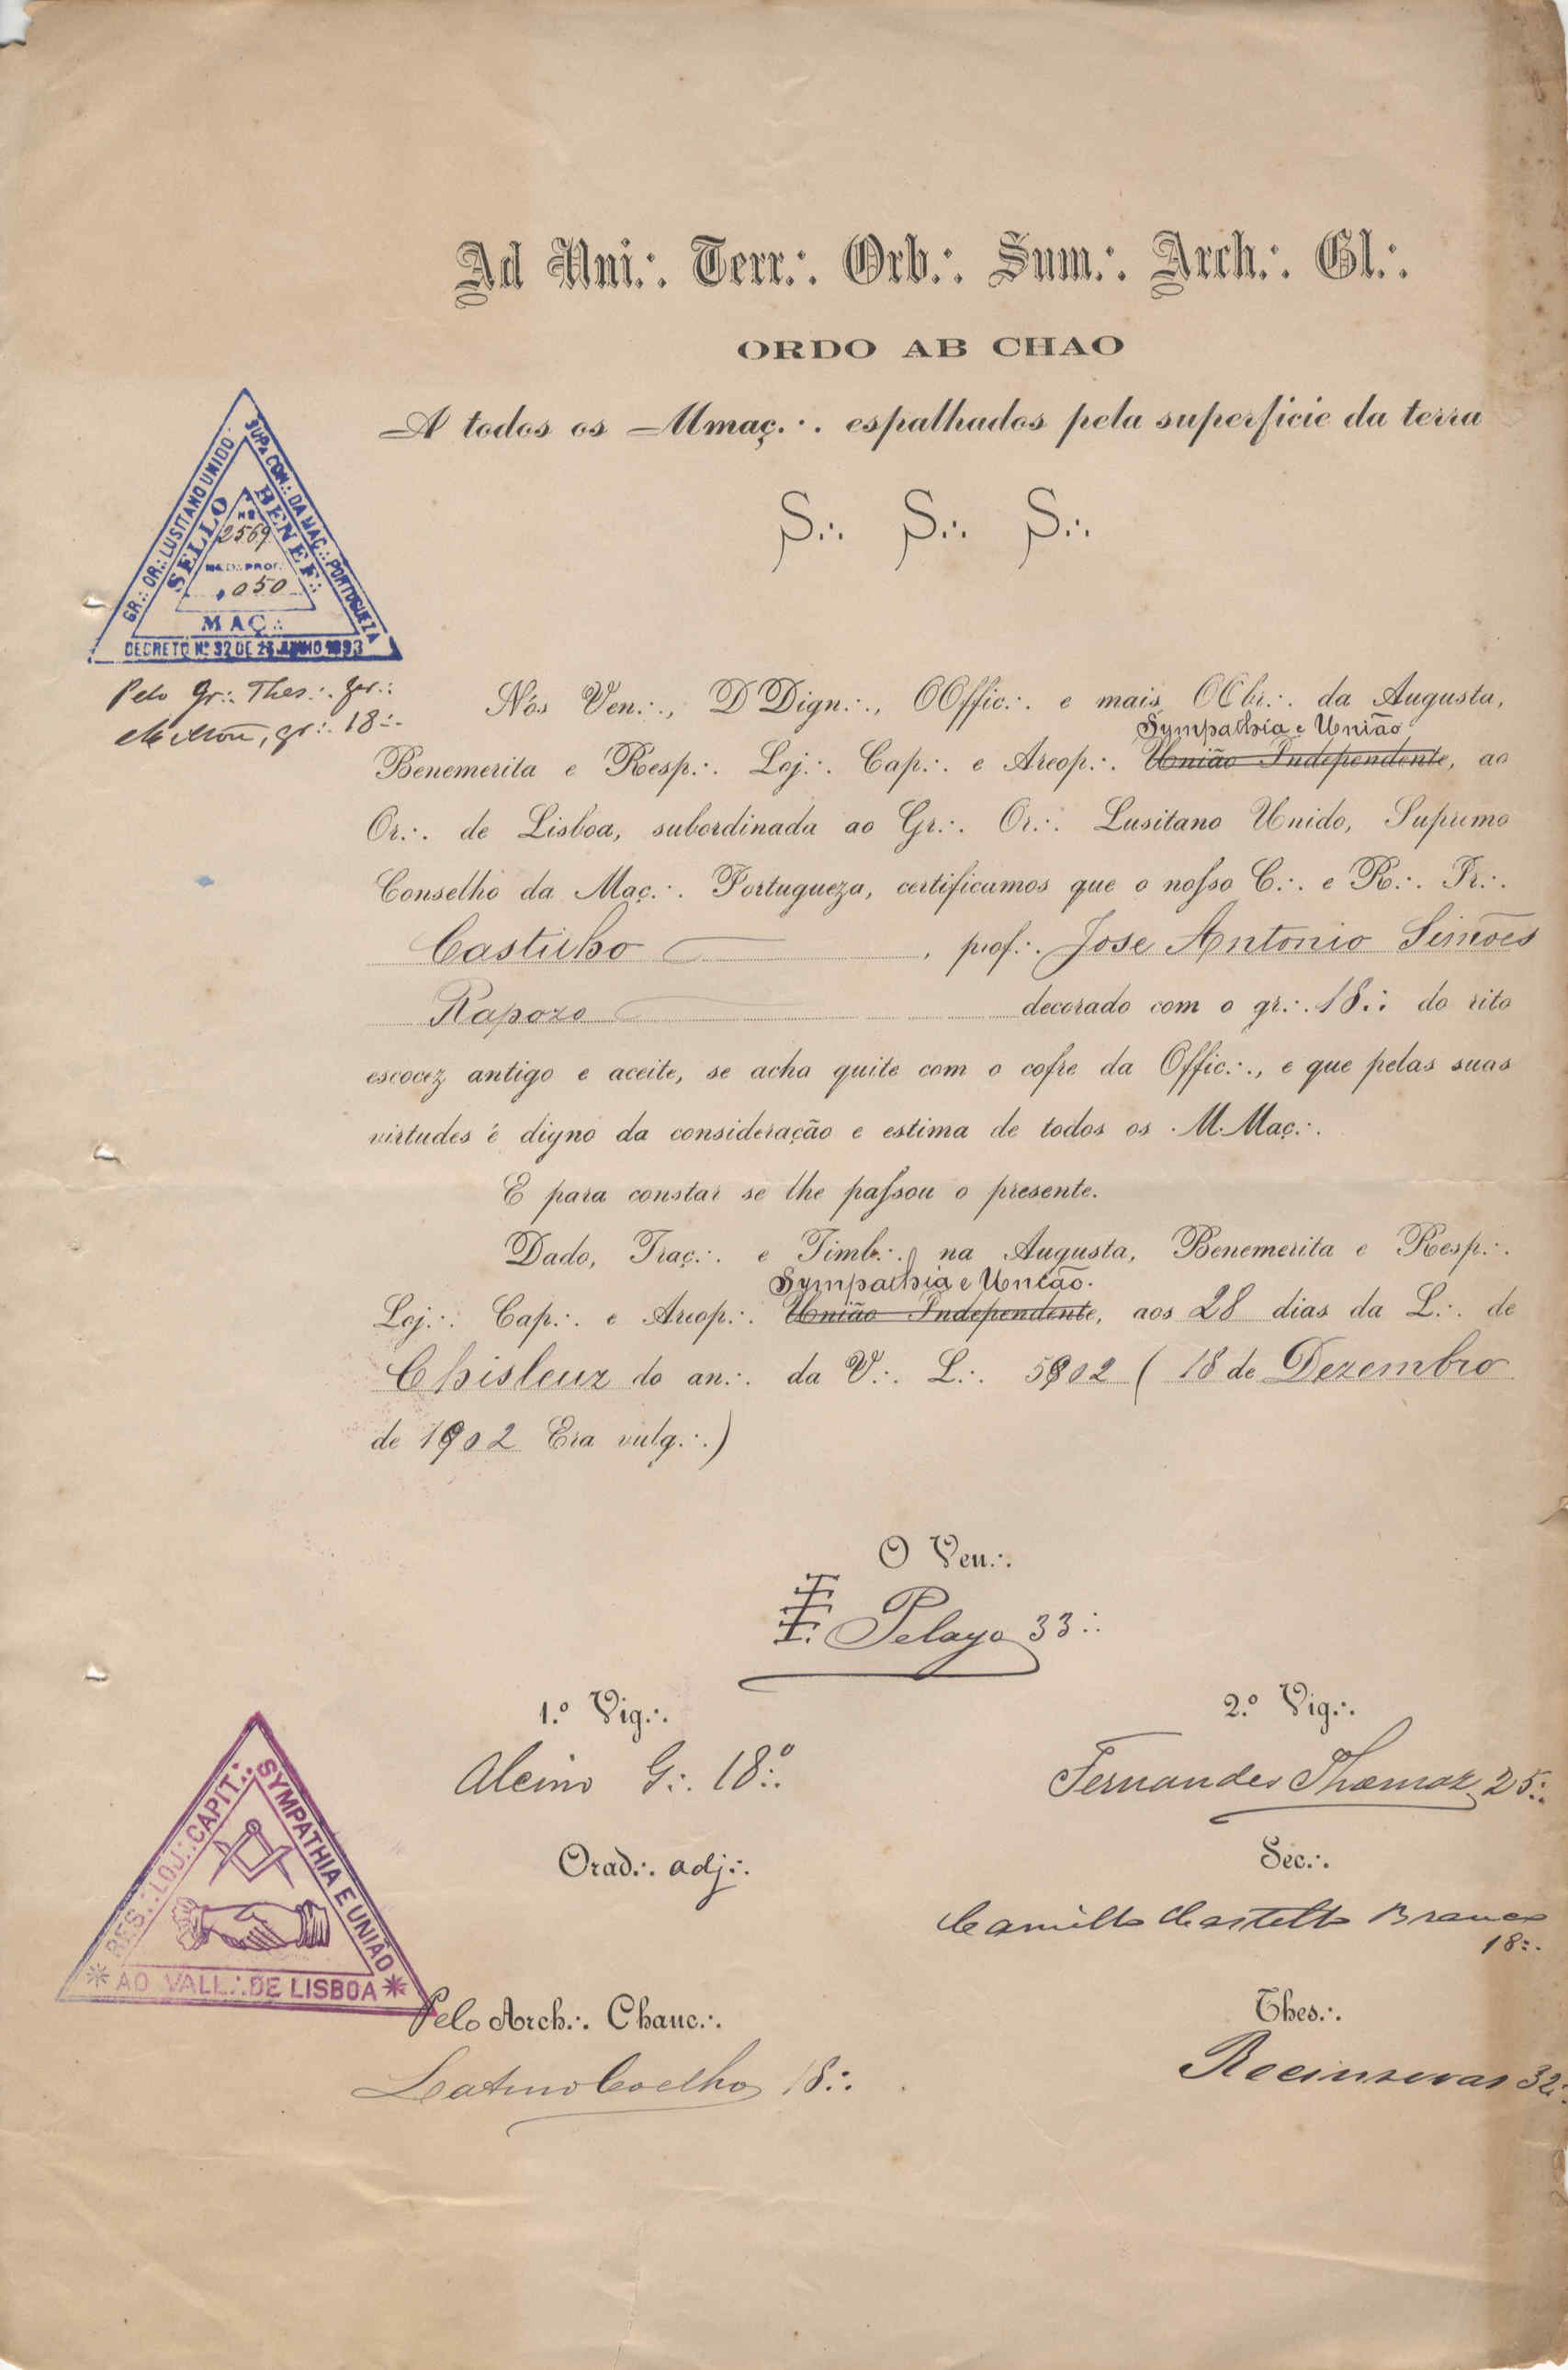 Ad Uni.·. Terr.·. Orb.·. Sum.·. Arch.·. Gl.·.
ORDO AB CHAO
A todos os Mmaç.·. espalhados pela superficie da terra
S.·. S.·. S.·.
GR.·. OR.·. LUSITANO UNIDO
SUP.·. CON.·. DA MAÇ.·. PORTUGUEZA
SELLO BENEF.·.
Nº
2569
PROF.·.
,050
MAÇ.·.
DECRETO Nº 32 DE JUNHO 1893
Pelo Gr.·. Thes.·. ger.·.
gr.·. 18.·.
Nós Ven.·., DDign.·., OOffic.·. e mais OObr.·. da Augusta,
Sympathia e União
Benemerita e Resp.·. Loj.·. Cap.·. e Areop.·. União Independente, ao
Or.·. de Lisboa, subordinada ao Gr.·. Or.·. Lusitano Unido, Supremo
Conselho da Maç.·. Portugueza, certificamos que o nosso C.·. e R.·. Ir.·.
Castilho, prof.·. Jose Antonio Simões
Rapozo decorado com o gr.·. 18.·. do rito
escocez antigo e aceite, se acha quite com o cofre da Offic.·., e que pelas suas
virtudes é digno da consideração e estima de todos os M.Maç.·.
E para constar se lhe passou o presente.
Dado, Traç.·. e Timb.·. na Augusta, Benemerita e Resp.·.
Sympathia e União.
Loj.·. Cap.·. e Areop.·. União Independente, aos 28 dias da L.·. de
Chisleuz do an.·. da V.·. L.·. 5902 (18 de Dezembro
de 1902 Era vulg.·.)
O Ven.·.
Pelayo 33.·.
1.º Vig.·.
2.º Vig.·.
Alcino G.·. 18º.·.
Fernandes Thomaz 25.·.
Orad.·. adj.·.
Sec.·.
Camillo Castello Branco
18.·.
RES.·. LOJ.·. CAPIT.·.
SYMPATHIA E UNIÃO
AO VALL.·. DE LISBOA
Pelo Arch.·. Chanc.·.
Thes.·.
Latino Coelho 18.·.
32.·.